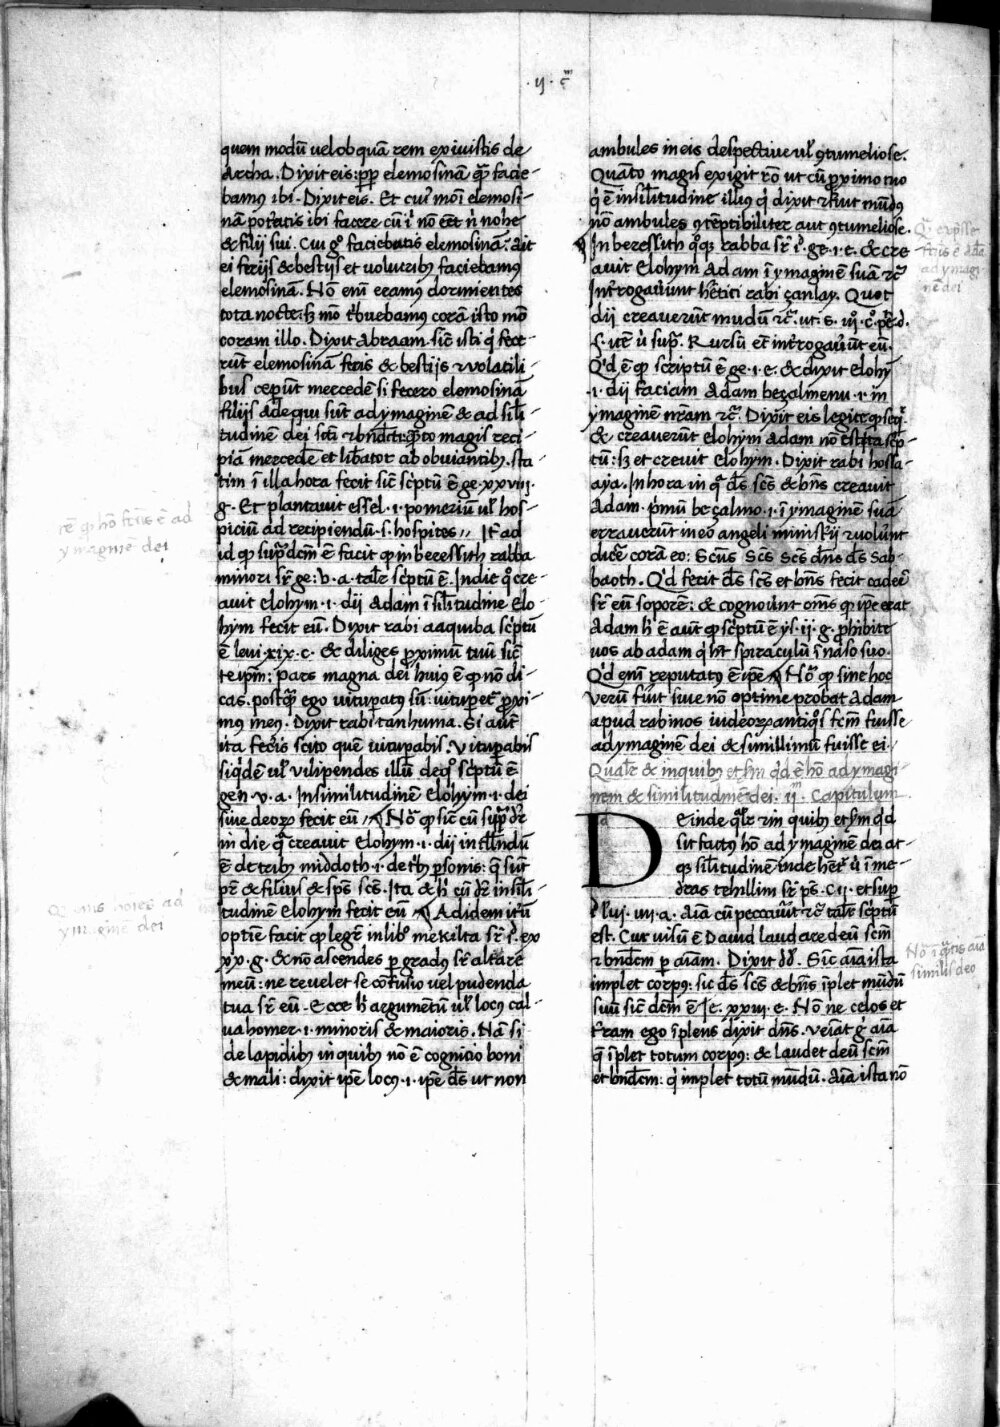 .ij. c̄
quem modū uel ob quā rem exiuistis de
Archa. Dixit eis: ꝓp̄ elemosinā quā facie-
bamus ibi. Dixit eis. Et cui' mōi elemosi-
nā poteratis ibi facere cū ī nō eēt ń nohe
& filij sui. Cui gͦ faciebatis elemosinā: Ait
ei ferijs & bestijs et uolucribꝫ faciebamꝰ
elemosinā. Nō enī eramus dormientes
tota nocte: sꝫ mō t'buebamus corā isto mō
coram illo. Dixit Abraam. sic̄ isti q' fece-
rūt elemosinam feris & bestijs ⁊ uolatili
bus ceperūt mercedē si fecero elemosinā
filijs ade qui sūt ad ymaginē & ad sil'i-
tudinē dei sc̄ti ⁊ bn̄dc̄ti: q̄to magis reci-
piā mercedē et lib̄ator ab obuiantibꝫ. sta
tim ī illa hora fecit sic̄ sc̄ptū ē ge. xxviij.
g. Et plantauit essel. i. pomeriū ul' hos-
piciū ad recipiendū. s. hospites // It̄ ad
id qͥ sup̄dc̄m ē facit qͥ in beressith rabba
minori sr̄ ge: v. a. tal'r sc̄ptū ē. In die qͣ cre-
auit elohym. i. dij Adam ī sil'itudine Elo-
hym fecit eū. Dixit rabi aaquiba sc̄ptū
ē leui. xix. c. & diliges ꝓximū tuū sic̄
te ip̄m: pars magna dei huiꝰ ē qͥ nō di-
cas. postq̄ ego uitupatꝰ sū: uitupet̄ ꝓxi-
mꝰ meꝰ. Dixit rabi tanhuma. Si aut̄
ita fecis scito quē uitupabis. Vitupabis
siq'dē ul' vilipendes illū de qͦ sc̄ptū ē
gen. v. a. In similitudinē Elohym. i. dei
siue deoꝝ fecit eū // Nō qͥ sic̄ cū sup̄ dr̄
in die qͣ creauit Elohym. i. dij intell'ndū
ē de tribꝫ middoth. i. de trībꝫ ꝑsonis: q̄ sūt
pr̄ & filius & sp̄s sc̄s. Ita & h' cū dr̄ in sil'i-
tudinē Elohym fecit eū Ad idem it'ū
optīe facit qͥ legr̄ in lib̄ mekilta sr̄ ł. ex
xx. g. & nō ascendes ꝑ gradꝰ sr̄ altare
meū: ne reuelet se cōfusio uel pudenda
tua sr̄ eū. Ecce h' argumētū ul' locꝰ cal-
ua homer. i. minoris & maioris. Nā si
de lapidibꝫ in quibꝫ nō ē cognicio boni
& mali: dixit ip̄e locꝰ. i. ip̄e d̄s ut non
ambules in eis despectiue ul' ꝯtumeliose.
Quāto magis exigit rō ut cū ꝓximo tuo
q' ē in sil'itudine illiꝰ q' dixit ⁊ fuit mūdꝰ
nō ambules ꝯtēptibiliter aut ꝯtumeliose.
In beressith rabba sr̄ ge. i. e. & cre
auit Elohym Adam ī ymaginē suā ⁊c̄
Int'rogauūnt h'etici rabi çanlay. Quot
dij creauerūt mūdū ⁊c̄.
Rursū et̄ int'rogauūt eū.
Q'd ē qͥ scriptū ē ge. i. e. & dixit Elohȳ
.i. dij faciam Adam beçalmenu. i. in
ymaginē nr̄am ⁊c̄. Dixit eis legite qͥ seq'
& creauerūt elohym adam nō ē sc̄p-
tū: sꝫ et creuit Elohym. Dixit rabi hossa-
aya. In hora in qͣ d̄s sc̄s & bn̄s creauit
Adam pͥmū beçalmo. i. ī ymaginē suā
errauerūt in eō angeli ministꝶij ⁊ uolūt
dicē corā eo: Scn̄s Sc̄s Sc̄s dn̄s d̄s Sab-
baoth. Q'd fecit d̄s sc̄s et bn̄s fecit cader̄
sr̄ eū soporē: & cognoūnt om̄s qͥ ip̄e erat
Adam h' ē aut̄ qͥ sc̄ptū ē ys. ij. g. ꝓhibete
uos ab adam q' h̄t spiraculū ī naso suo.
Q'd enī reputatꝰ ē ip̄e Nō qͥ siue hoc
verū fuit siue nō optime probat Adam
apud rabinos uideoꝝ antiqͦs fc̄m fuisse
ad ymaginē dei & simillimū fuisse ei.
Qual'r & in quibꝫ et sm̄ q'd ē hō ad ymagi-
nem & similitudinē dei. ij. Capitulum
DEinde qͣl'r ⁊ in quibꝫ et sm̄ q'd
sit factꝰ hō ad ymaginē dei at-
qꝫ sil'itudinē inde het̄ ī me-
dras tehillim sr̄ ps. cij. et sup̄
ł lvi. vij. a. Aīa cū peccauīt ⁊c̄ tal'r sc̄ptū
est. Cur visū ē Dauid laudare deū sc̄m
⁊ bn̄dc̄m ꝑ aīam. Dixit d'd. Sic̄ aīa ista
implet corpꝰ: sic d̄s sc̄s & bn̄s īplet mūdū
suū sic̄ dc̄m ē Ie. xxiij. e. Nō ne celos et
t'ram ego īplens dixit dn̄s. Veīat g' aīa
q̄ īplet totum corpꝰ: & laudet deū sc̄m
et bn̄dc̄m: q' implet totū mūdū. Aīa ista nō
qͥ hō fc̄us ē ad
ymaginē dei
om̄s hoīes ad
ymaginē dei
fc̄us ē adā
ad ymagi
nē dei
Nō ī aīa
similis deo